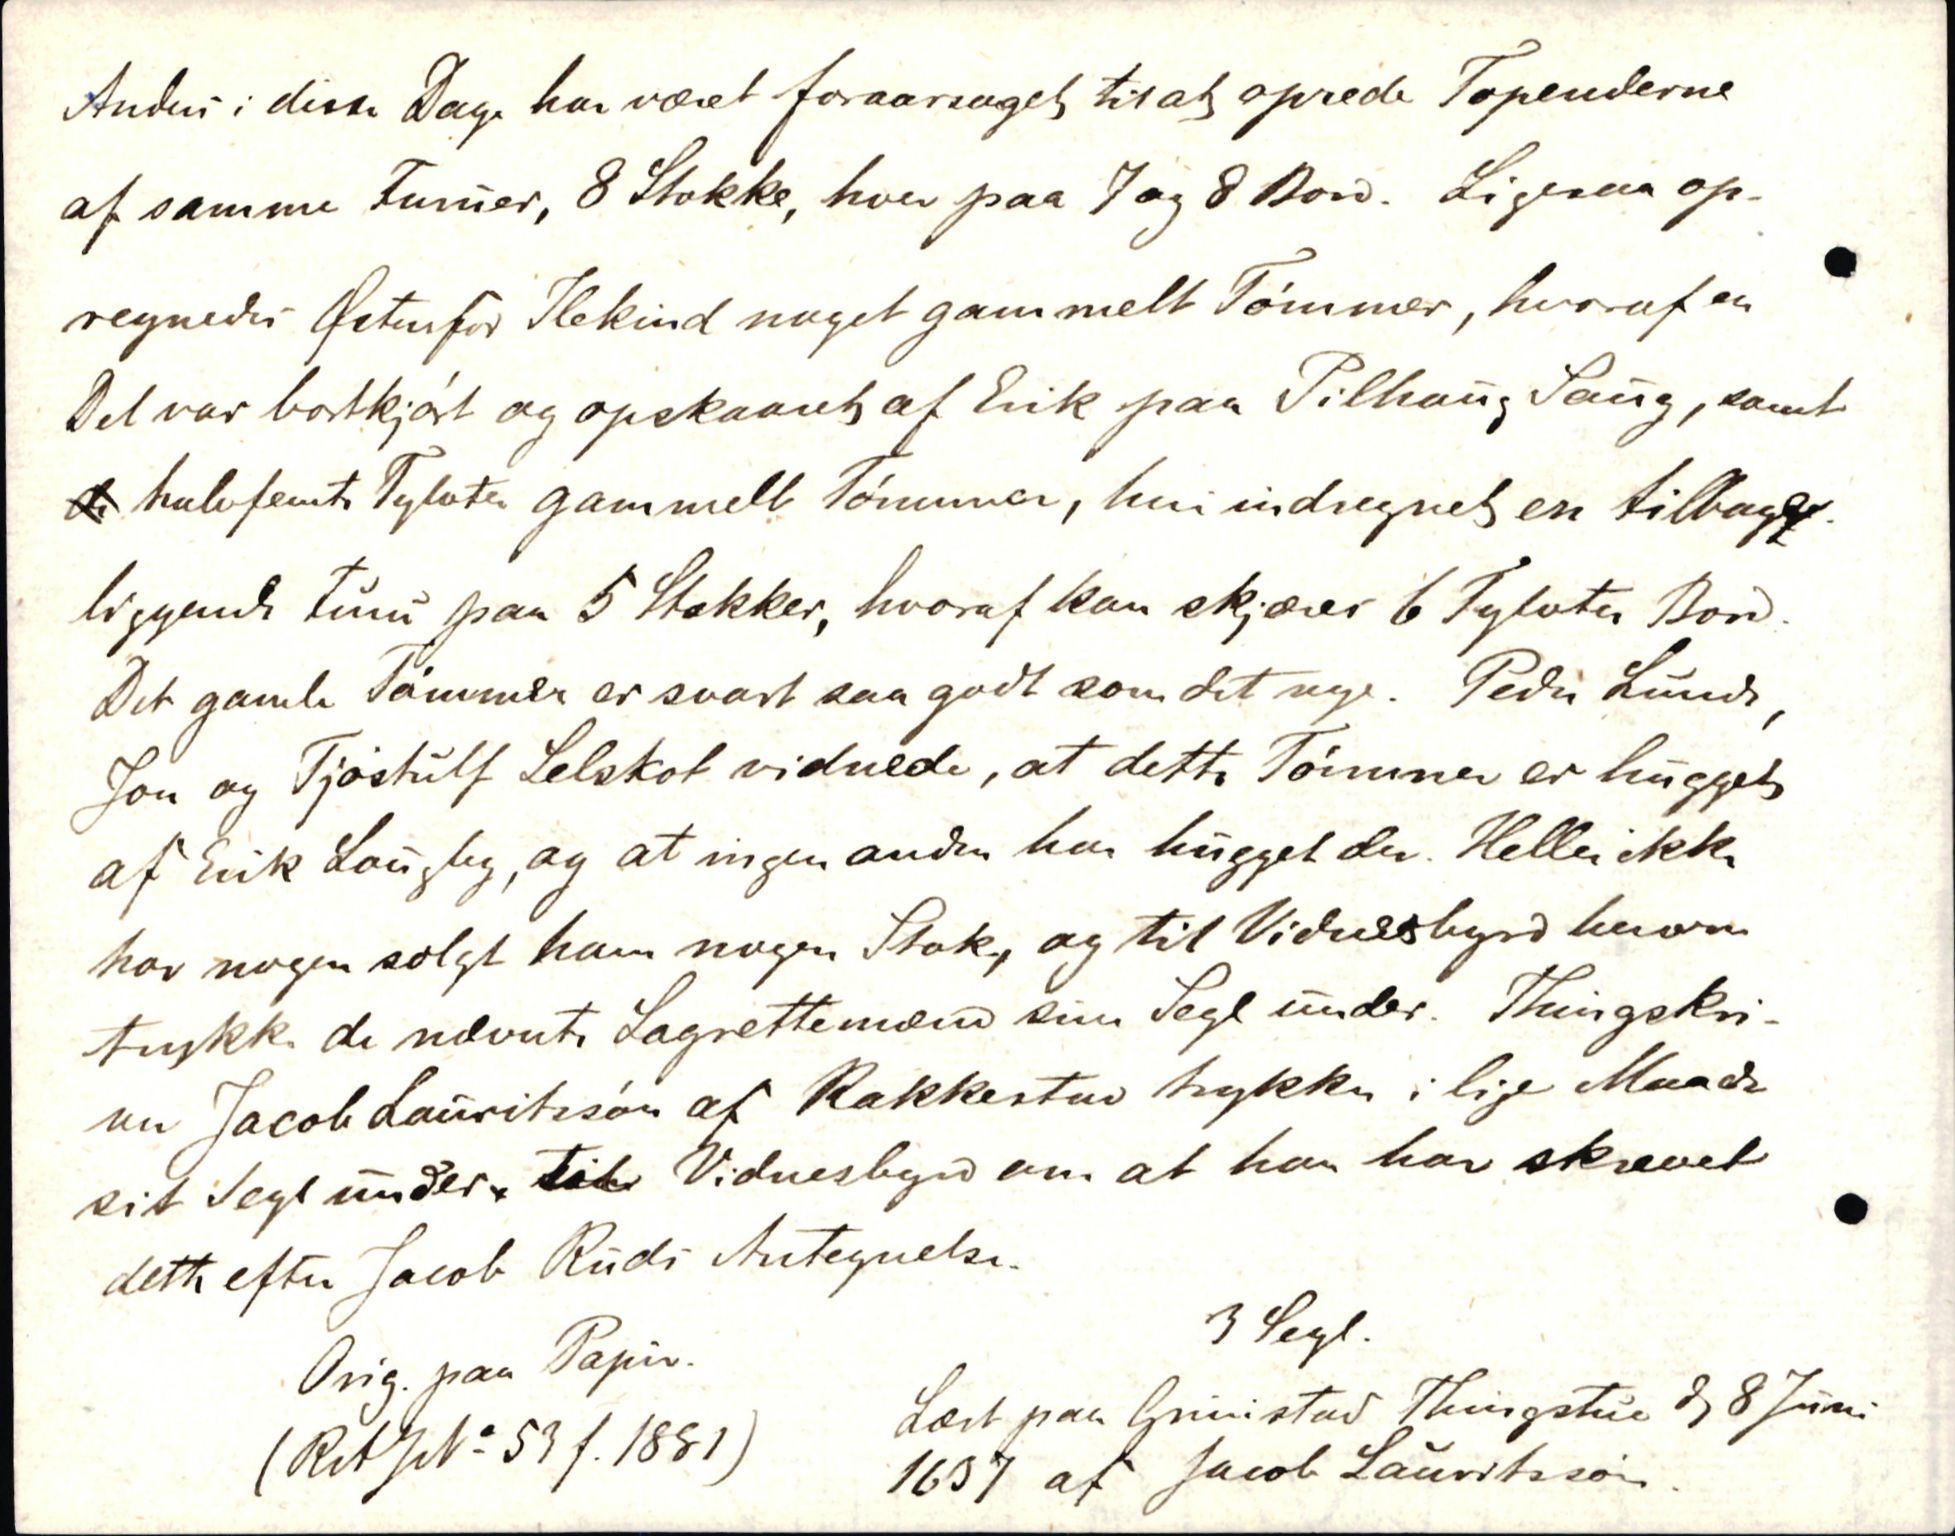 Anders i disse Dage har været foraarsaget til at oprede Topenderne
af samme Furuer, 8 Stokke, hver paa 7 og 8 Bord. Ligesaa op-
regnedes Østenfor Ilekind noget gammelt Tømmer, hvoraf en
Del var bortkjørt og opskaaret af Erik paa Pilhaug Saug, samt
halvfemte Tylvter gammelt Tømmer, heri indregnet en tilbage-
liggende Furu paa 5 Stokker, hvoraf kan skjæres 6 Tylvter Bord.
Det gamle Tømmer er svart saa godt som det nye. Peder Lunde,
Jon og Tjøstulf Lelskot vidnede, at dette Tømmer er hugget
af Erik Lougby, og at ingen anden har hugget der. Heller ikke
har nogen solgt ham nogen Stok, og til Vidnesbyrd herom
trykke de nævnte Lagrettemænd sine Segl under. Thingskri-
ver Jacob Lauritssøn af Rakkestad trykker i lige Maade
sit Segl under til Vidnesbyrd om at han har skrevet
dette efter Jacob Ruds Antegnelse.
3 Segl.
Orig. paa Papir.
Læst paa Grimstad Thingstue d. 8 Juni
(RA JNº 53 f. 1881)
1637 af Jacob Lauritssøn.